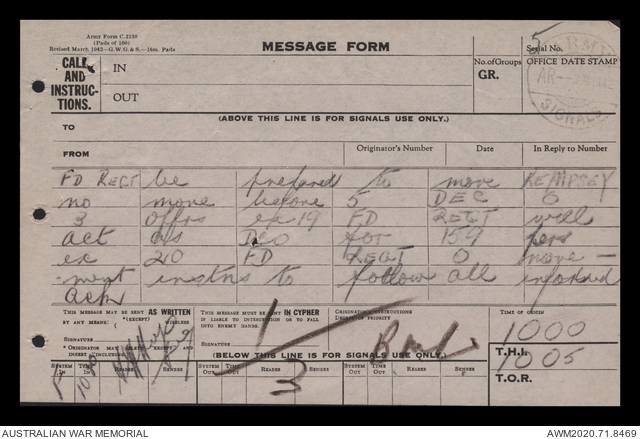 Army Form C.2130
(Pads of 100)
Revised March 1942—G.W.G.&S.—16m. Pads
MESSAGE FORM
Serial No.
CALL AND INSTRUCTIONS.
IN
OUT
No. of Groups
GR.
OFFICE DATE STAMP
SIGNALS
(ABOVE THIS LINE IS FOR SIGNALS USE ONLY.)
TO
FROM
Originator's Number
Date
In Reply to Number
FD REGT be prepared to move KEMPSEY
no move before 5 DEC 0
3 offrs ex 19 FD REGT will
act as for 159 pers
ex 20 FD REGT 0 move-
-ment instns to follow all informed
ack
THIS MESSAGE MAY BE SENT AS WRITTEN
BY ANY MEANS (EXCEPT) WIRELESS
SIGNATURE
* ORIGINATOR MAY DELETE (EXCEPT) AND
INSERT
THIS MESSAGE MUST BE SENT IN CYPHER
IF LIABLE TO INTERCEPTION OR TO FALL
INTO ENEMY HANDS.
SIGNATURE
ORIGINATOR'S INSTRUCTIONS
DEGREE OF PRIORITY
TIME OF ORIGIN
1000
(BELOW THIS LINE IS FOR SIGNALS USE ONLY.)
T.H.I.
1005
SYSTEM IN
TIME IN
READER
SENDER
SYSTEM OUT
TIME OUT
READER
SENDER
SYSTEM OUT
TIME OUT
READER
SENDER
T.O.R.
3
AUSTRALIAN WAR MEMORIAL
AWM2020.71.8469